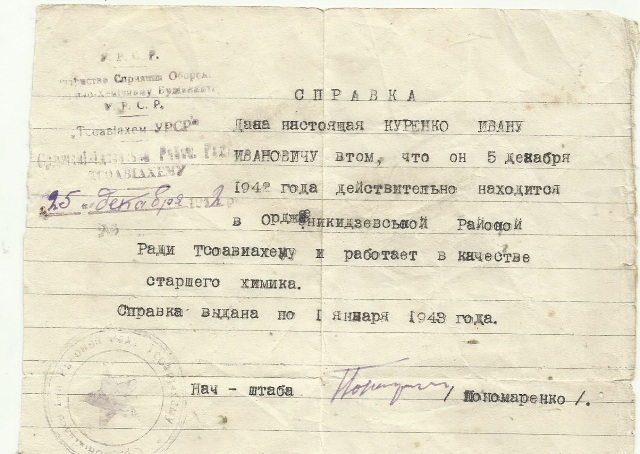 У.Р.С.Р.
У.Р.С.Р.
„Тсоавіахем УРСР"
ТСОАВІАХЕМУ
„25" декабря 1942
СПРАВКА
Дана настоящая КУРЕНКО ИВАНУ
ИВАНОВИЧУ втом, что он 5 декабря
1942 года действительно находится
в Орджоникидзевськой Районой
Ради Тсоавиахему и работает в качестве
старшего химика.
Справка выдана по 1 января 1943 года.
Нач - штаба / Пономаренко /.